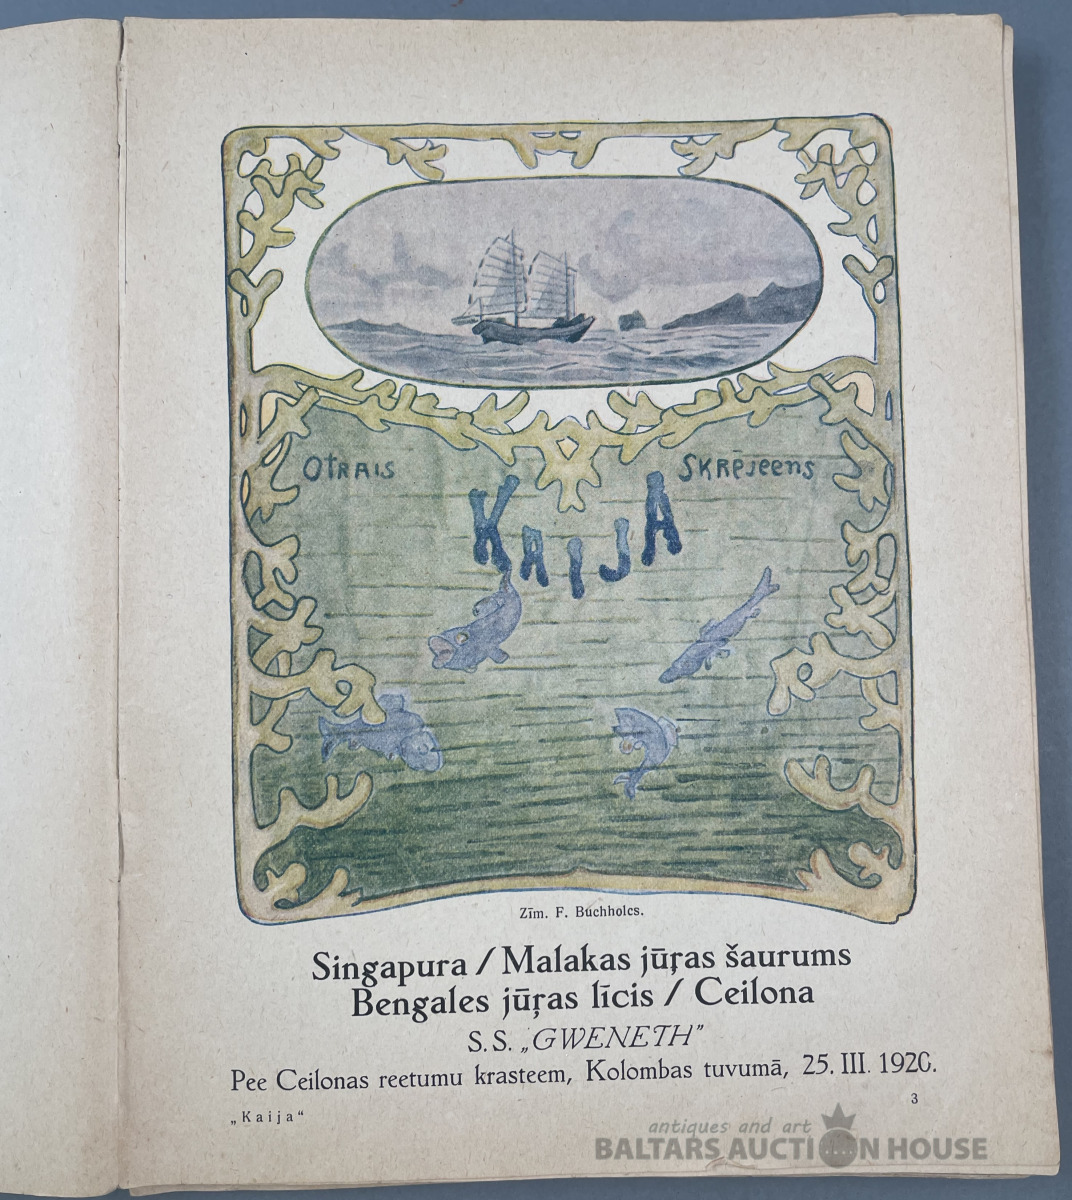 OTRAIS SKRĒJEENS
KAIJA
Zīm. F. Buchholcs.
Singapura / Malakas jūŗas šaurums
Bengales jūŗas līcis / Ceilona
S. S. „GWENETH”
Pee Ceilonas reetumu krasteem, Kolombas tuvumā, 25. III. 1920.
3
„Kaija“
antiques and art
BALTARS AUCTION HOUSE